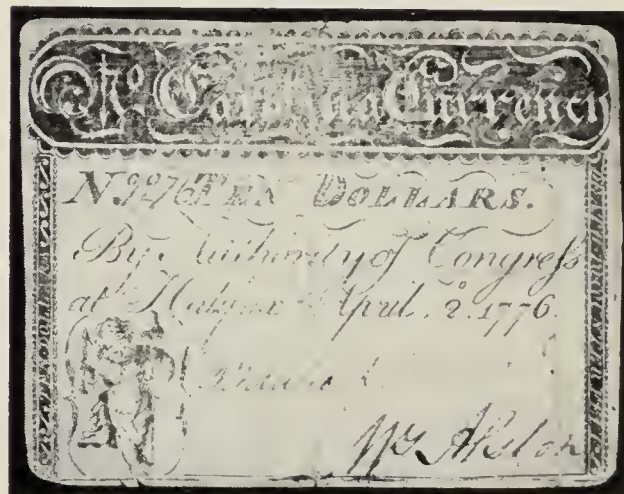 No Carolina Currency
No 2276 TEN DOLLARS.
By Authority of Congreſs
at Halifax April. 2. 1776.
Wm Alston